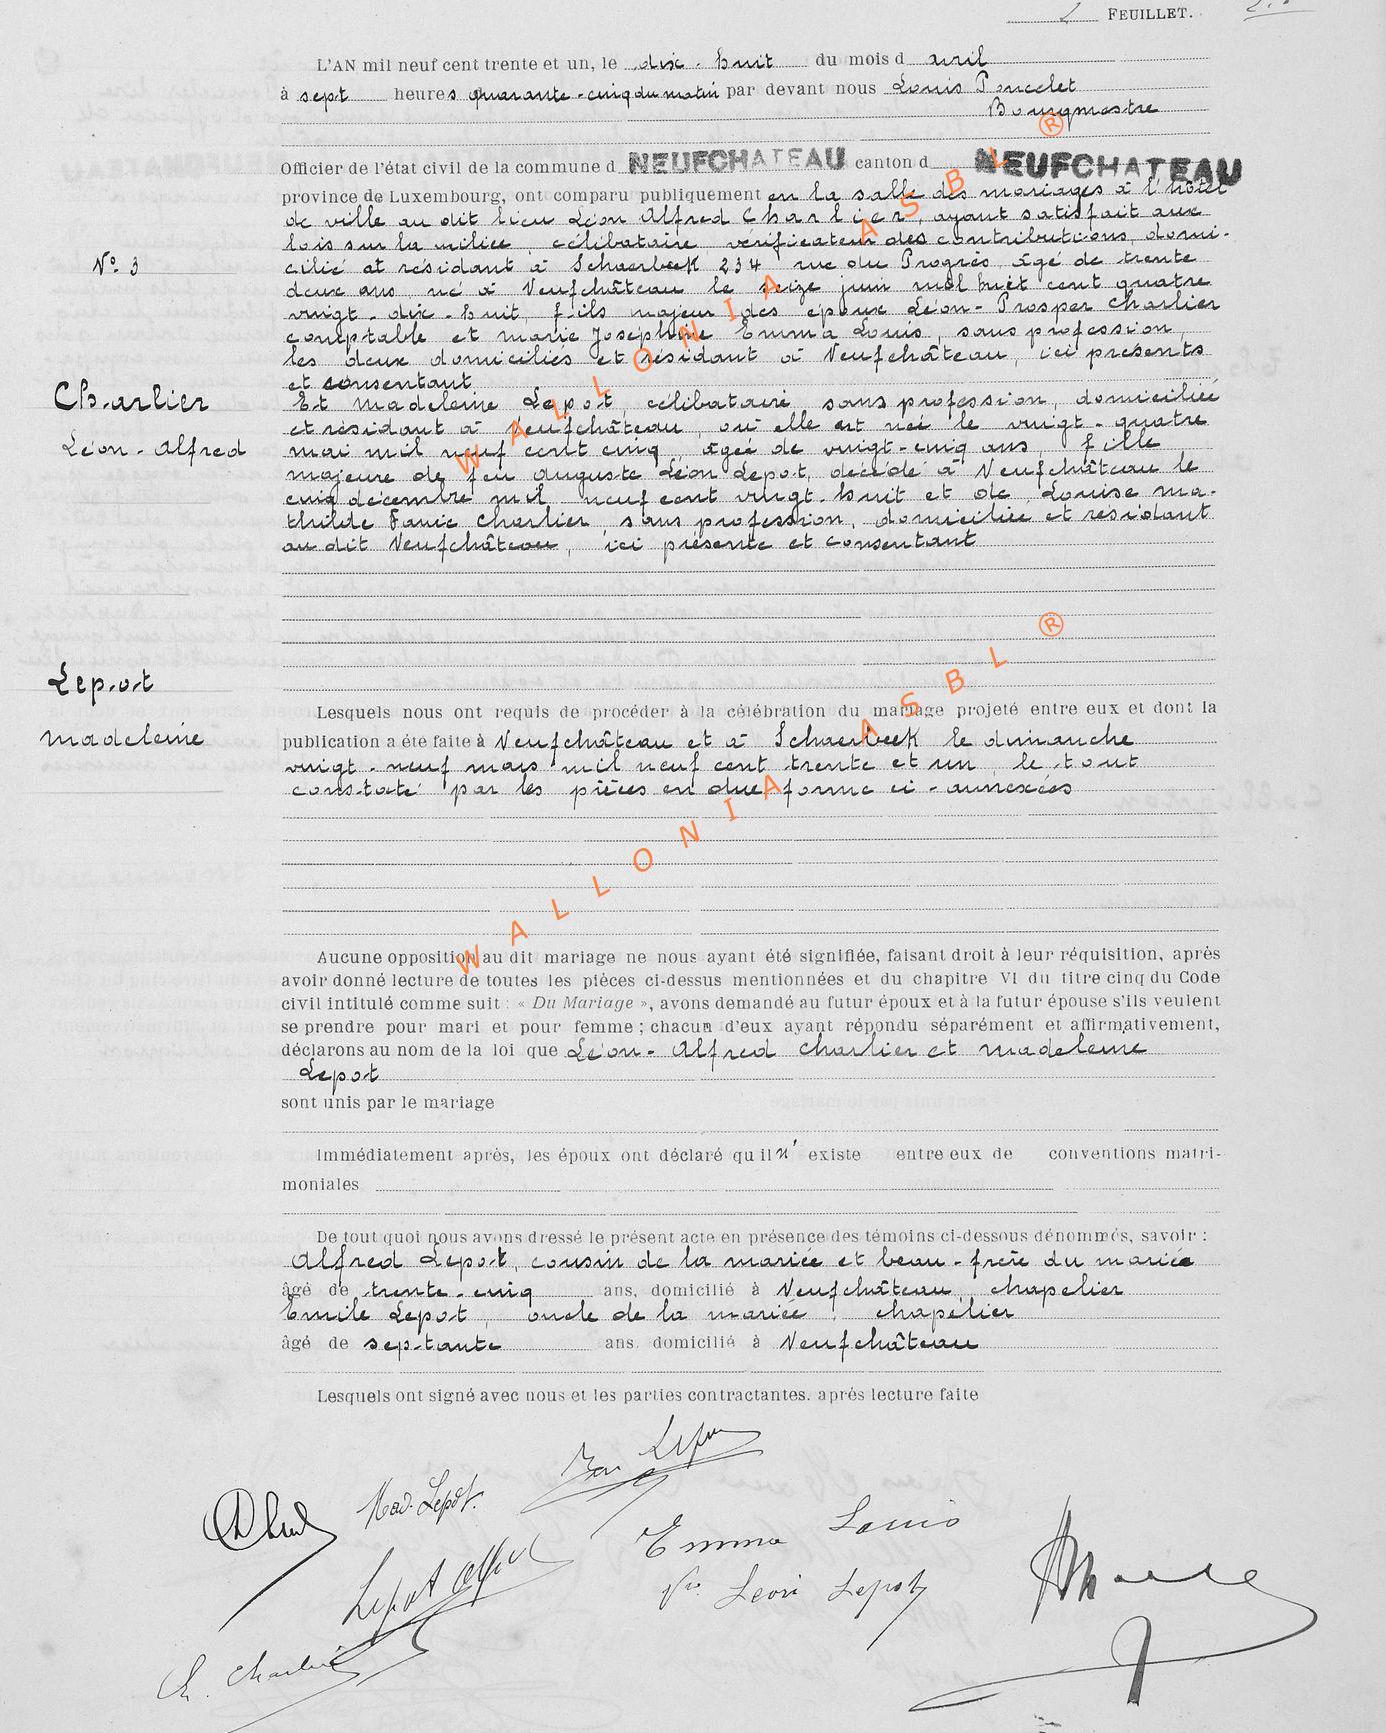 2 FEUILLET.
L'AN mil neuf cent trente et un, le dix-huit du mois d avril
à sept heures quarante-cinq du matin par devant nous Louis Poncelet
Bourgmestre
Officier de l'état civil de la commune d NEUFCHATEAU canton d NEUFCHATEAU
province de Luxembourg, ont comparu publiquement en la salle des mariages à l'hôtel
de ville au dit lieu Léon Alfred Charlier, ayant satisfait aux
lois sur la milice, célibataire vérificateur des contributions, domi-
N° 3
cilié et résidant à Schaerbeek 234 rue du Progrès, âgé de trente
deux ans, né à Neufchâteau le seize juin mil huit cent quatre
vingt-dix-huit, fils majeur des époux Léon-Prosper Charlier
comptable et Marie Joséphine Emma Louis, sans profession,
les deux domiciliés et résidant à Neufchâteau, ici présents
et consentant
Charlier
Léon-Alfred
Et Madeleine Lepot, célibataire sans profession, domiciliée
et résidant à Neufchâteau, où elle est née le vingt-quatre
mai mil neuf cent cinq, âgée de vingt-cinq ans, fille
majeure de feu Auguste Léon Lepot, décédé à Neufchâteau le
cinq décembre mil neuf cent vingt-huit et de Louise Ma-
thilde Fanie Charlier, sans profession, domiciliée et résidant
au dit Neufchâteau, ici présente et consentant
Lepot
Madeleine
Lesquels nous ont requis de procéder à la célébration du mariage projeté entre eux et dont la
publication a été faite à Neufchâteau et à Schaerbeek le dimanche
vingt-neuf mars mil neuf cent trente et un, le tout
constaté par les pièces en due forme ci-annexées
WALLONIA ASBL ®
WALLONIA ASBL ®
Aucune opposition au dit mariage ne nous ayant été signifiée, faisant droit à leur réquisition, après
avoir donné lecture de toutes les pièces ci-dessus mentionnées et du chapitre VI du titre cinq du Code
civil intitulé comme suit : « Du Mariage », avons demandé au futur époux et à la futur épouse s'ils veulent
se prendre pour mari et pour femme ; chacun d'eux ayant répondu séparément et affirmativement,
déclarons au nom de la loi que Léon-Alfred Charlier et Madeleine
Lepot
sont unis par le mariage
Immédiatement après, les époux ont déclaré qu'il n' existe entre eux de conventions matri-
moniales
De tout quoi nous avons dressé le présent acte en présence des témoins ci-dessous dénommés, savoir :
Alfred Lepot, cousin de la mariée et beau-frère du mariée
âgé de trente-cinq ans, domicilié à Neufchâteau, chapelier
Emile Lepot, oncle de la mariée, chapelier
âgé de septante ans domicilié à Neufchâteau
Lesquels ont signé avec nous et les parties contractantes. après lecture faite
Mad. Lepot.
Emma Louis
Lepot Alfred
Vve Léon Lepot
Charlier